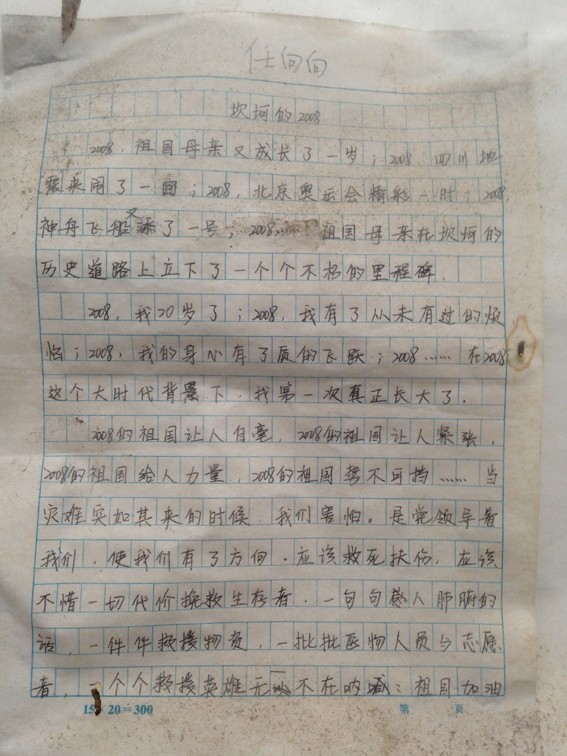 任向向
坎坷的2008
2008，祖国母亲又成长了一岁；2008，四川地
震来闹了一回；2008，北京奥运会精彩一时；2008，
神舟飞船又添了一号；2008……祖国母亲在坎坷的
历史道路上立下了一个个不朽的里程碑．
2008，我20岁了；2008，我有了从未有过的烦
恼；2008，我的身心有了质的飞跃；2008……在2008
这个大时代背景下，我第一次真正长大了．
2008的祖国让人自豪，2008的祖国让人紧张，
2008的祖国给人力量，2008的祖国势不可挡……当
灾难突如其来的时候，我们害怕。是党领导着
我们，使我们有了方向．应该救死扶伤，应该
不惜一切代价挽救生存者．一句句感人肺腑的
话，一件件救援物资，一批批医物人员与志愿
者，一个个救援英雄无不在呐喊：祖国加油
15×20=300
第 页